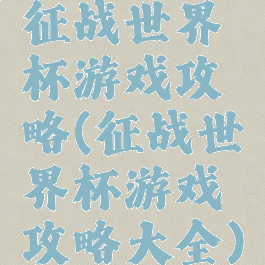 征战世界
杯游戏攻
略(征战世
界杯游戏
攻略大全)